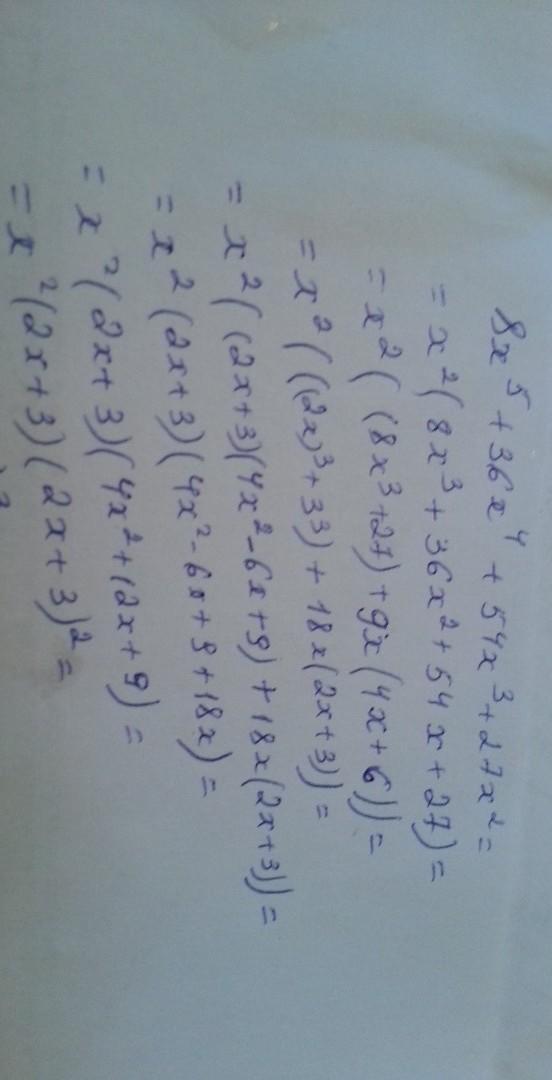 8x⁵ + 36x⁴ + 54x³ + 27x² =
= x²(8x³ + 36x² + 54x + 27) =
= x²((8x³ + 27) + 9x(4x + 6)) =
= x²(((2x)³ + 3³) + 18x(2x + 3)) =
= x²((2x + 3)(4x² - 6x + 9) + 18x(2x + 3)) =
= x²(2x + 3)(4x² - 6x + 9 + 18x) =
= x²(2x + 3)(4x² + 12x + 9) =
= x²(2x + 3)(2x + 3)² =